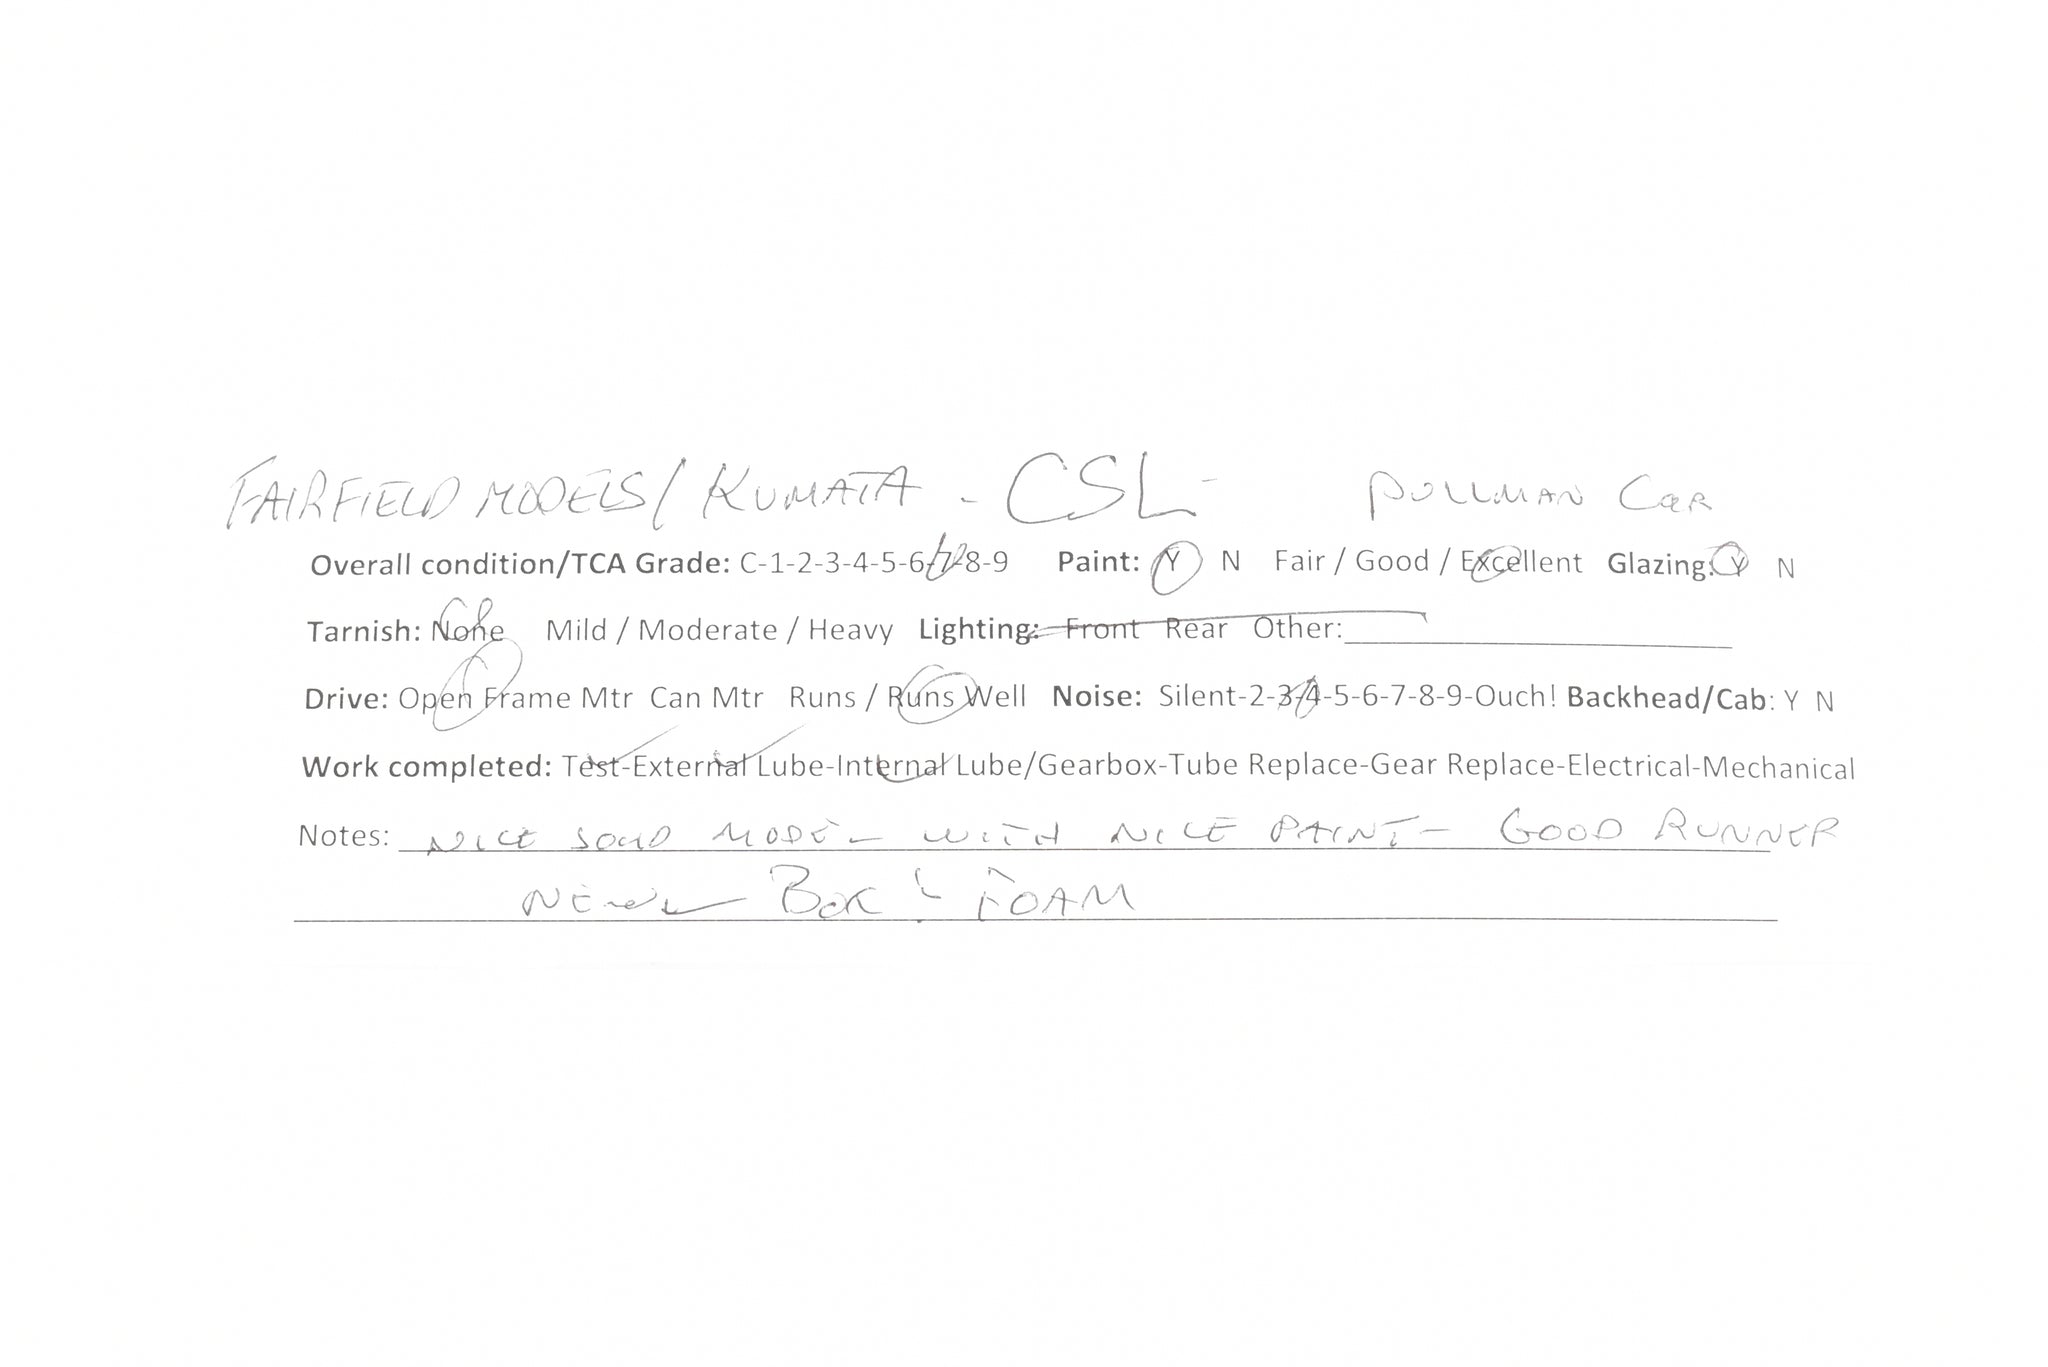 FAIRFIELD MODELS/ KUMATA - CSL - PULLMAN CAR
Overall condition/TCA Grade: C-1-2-3-4-5-6-7-8-9 Paint: Y N Fair / Good / Excellent Glazing: Y N
Tarnish: None Mild / Moderate / Heavy Lighting: Front Rear Other:
Drive: Open Frame Mtr Can Mtr Runs / Runs Well Noise: Silent-2-3-4-5-6-7-8-9-Ouch! Backhead/Cab: Y N
Work completed: Test-External Lube-Internal Lube/Gearbox-Tube Replace-Gear Replace-Electrical-Mechanical
Notes: NICE SOLID MODEL WITH NICE PAINT - GOOD RUNNER
NEW BOX & FOAM